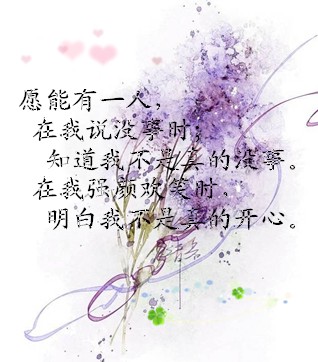 愿能有一人，
在我说没事时，
知道我不是真的没事。
在我强颜欢笑时，
明白我不是真的开心。